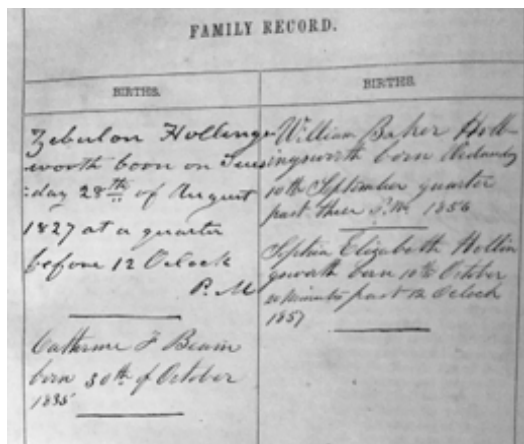 FAMILY RECORD.
BIRTHS.
Zebulon Hollings
worth born on Tues
:day 28th of August
1827 at a quarter
before 12 Oclock
P.M
Catherine F Beam
born 30th of October
1835
BIRTHS.
William Baker Holl
ingsworth born Wednesday
10th September quarter
past three P.M. 1856
Elizabeth Hollin
gsworth born 10th October
20 minutes past 12 Oclock
1857